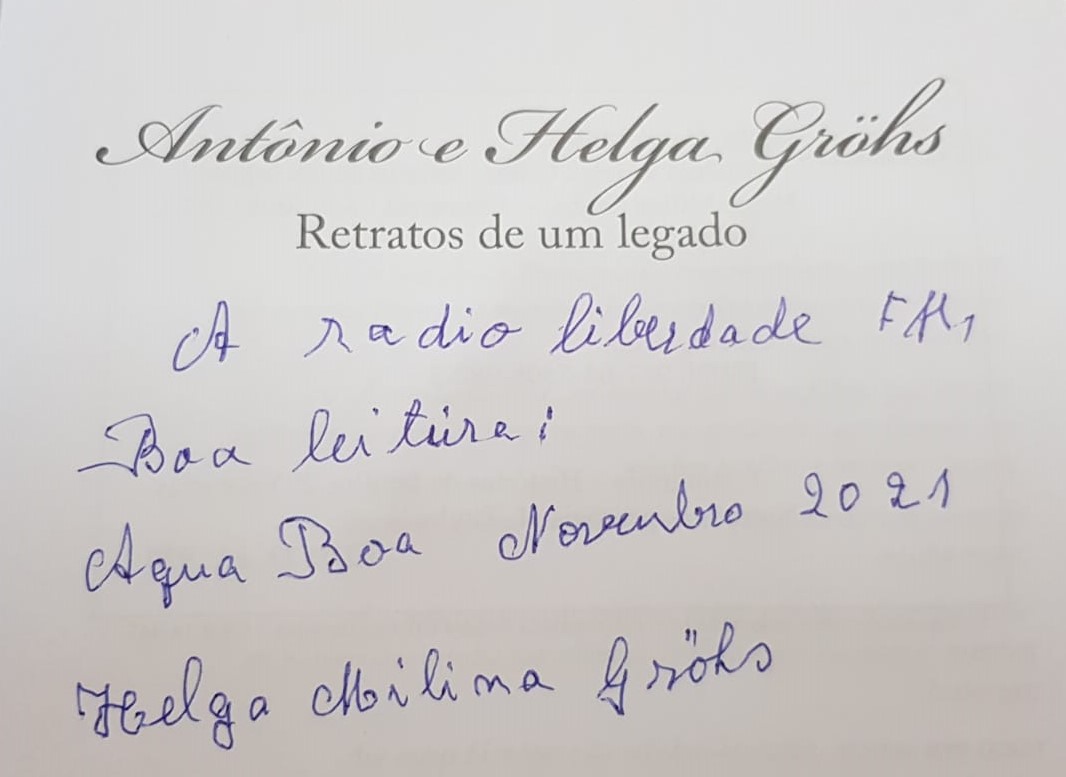 Antônio e Helga Gröhs
Retratos de um legado
A radio liberdade FM,
Boa leitura!
Agua Boa Novembro 2021
Helga Milina Gröhs